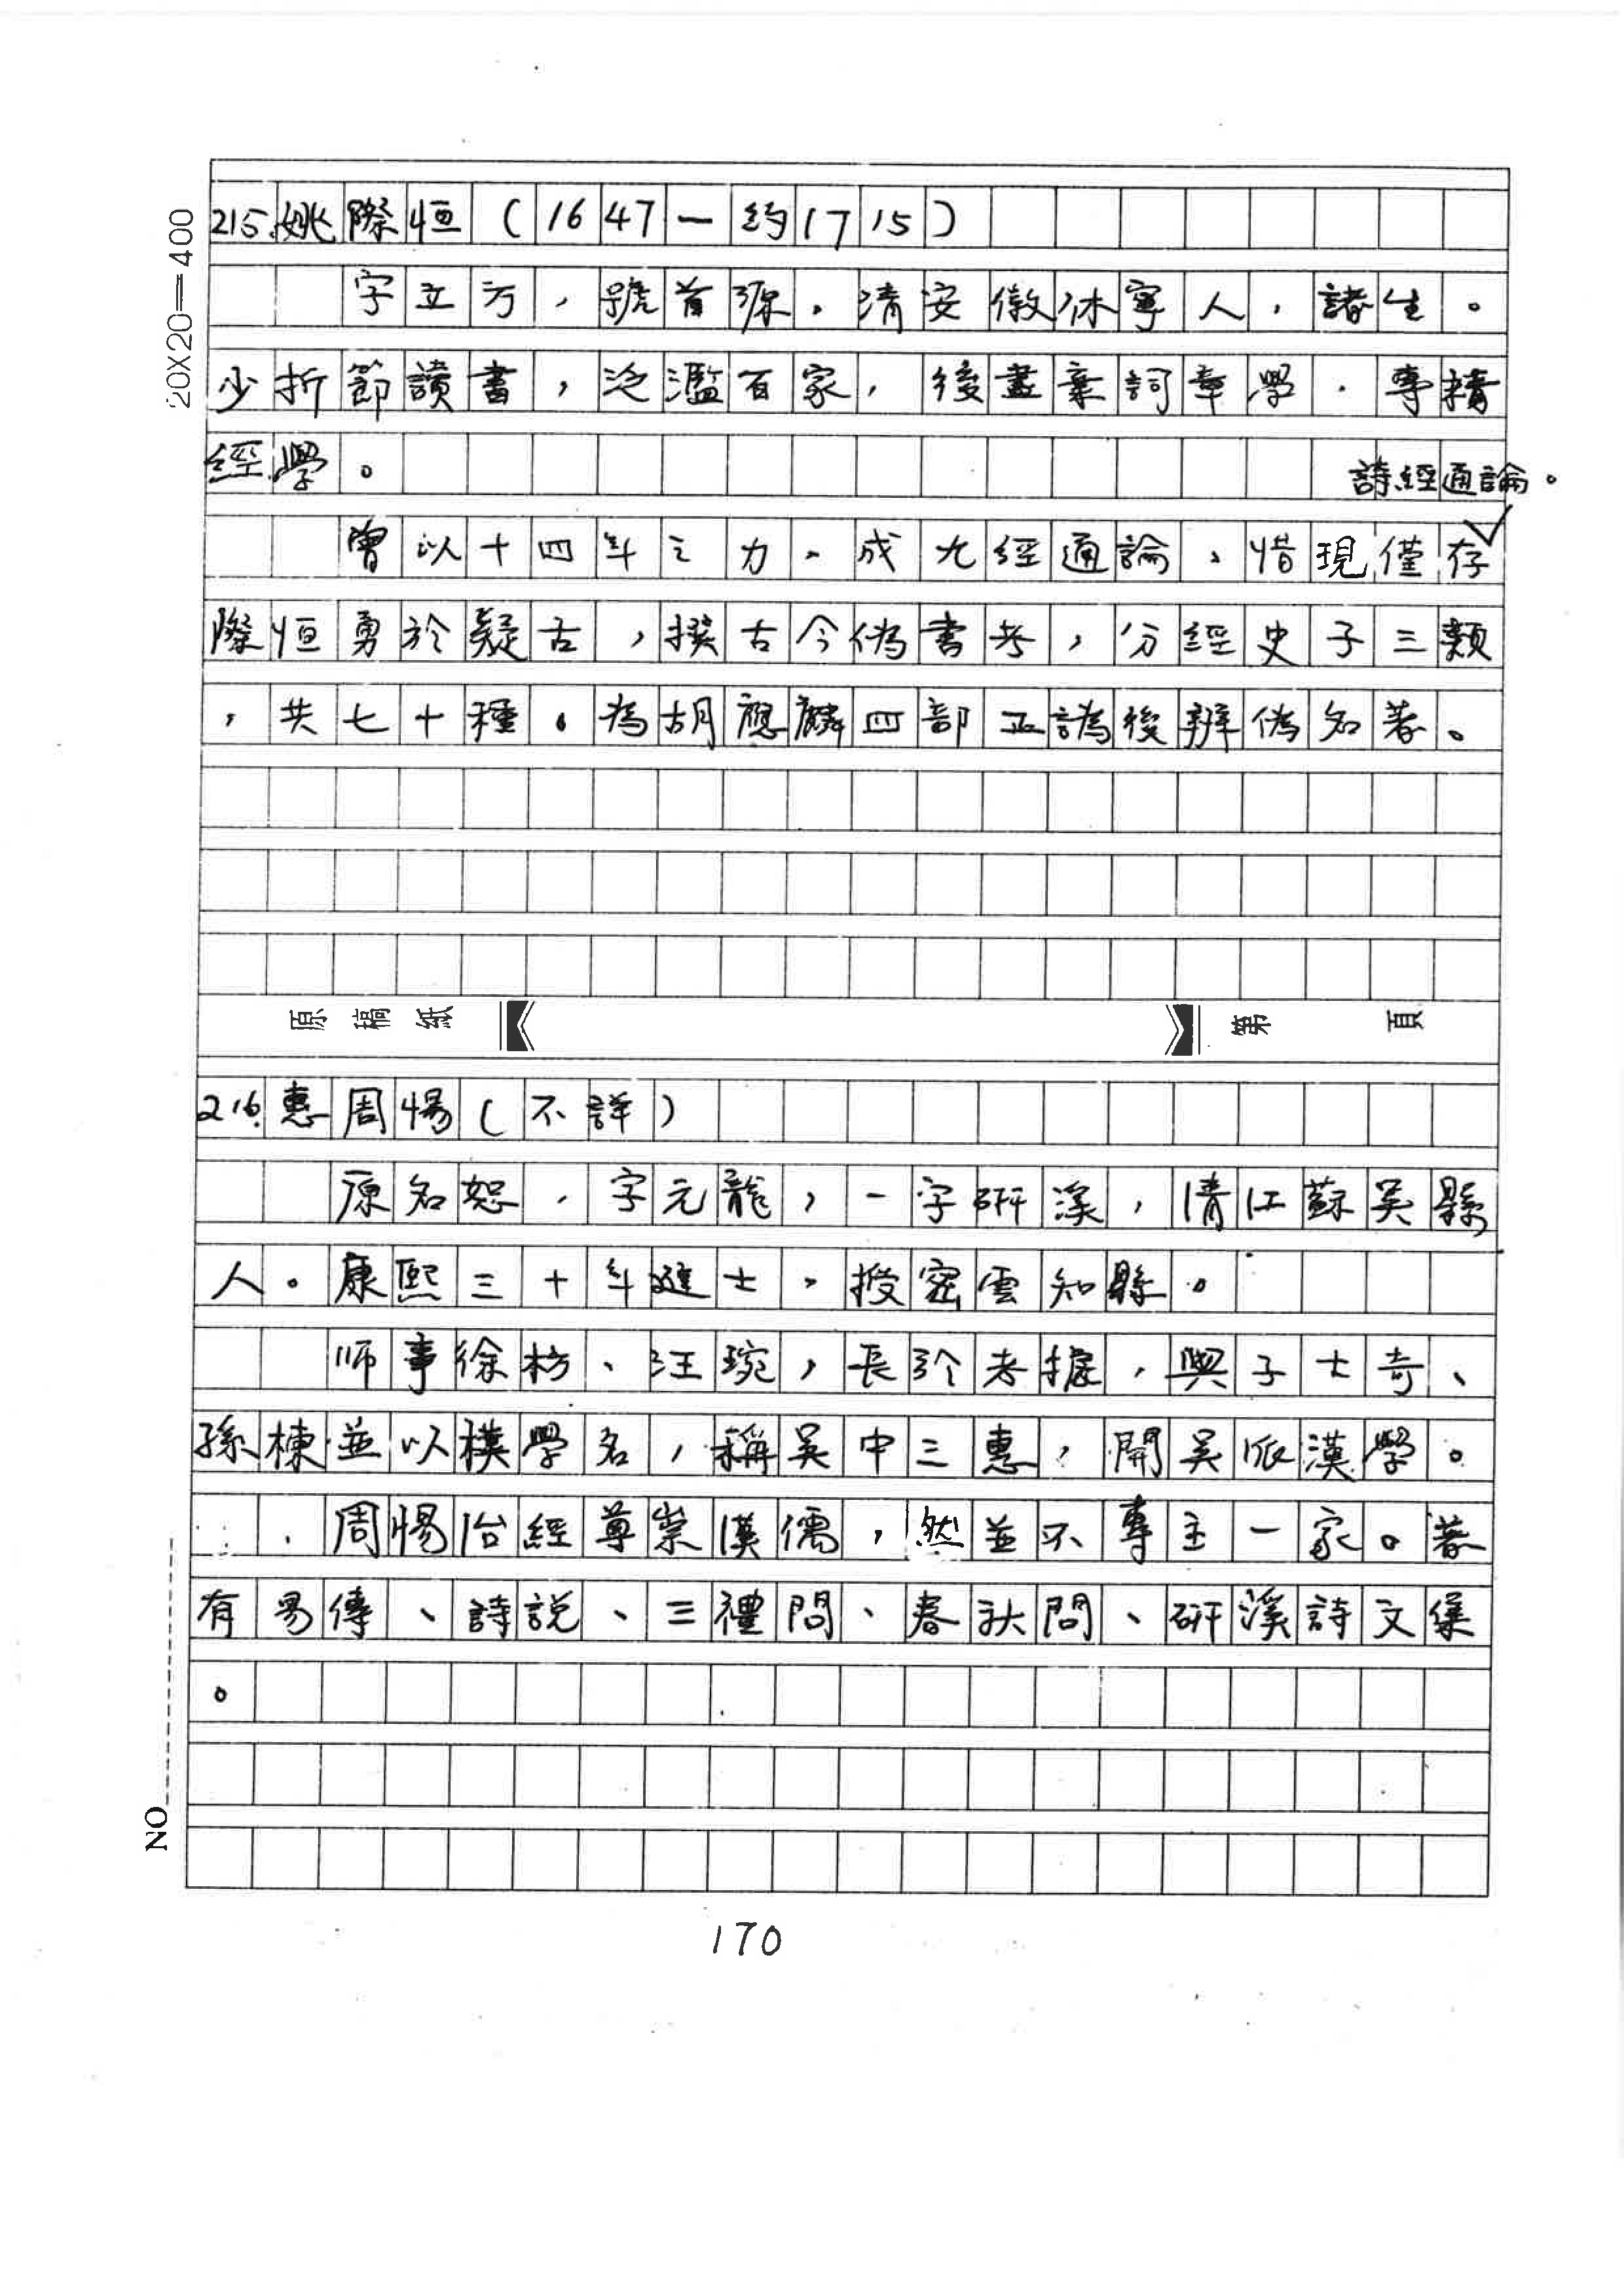 20X20=400
215.姚際恒(1647—約1715)
字立方,號首源。清安徽休寧人,諸生。
少折節讀書,泛濫百家,後盡棄詞章學,專精
經學。
詩經通論。
曾以十四年之力,成九經通論,惜現僅存✓
際恒勇於疑古,撰古今偽書考,分經史子三類
,共七十種。為胡應麟四部正譌後辨偽名著。
原稿紙 第 頁
216.惠周惕(不詳)
原名恕,字元龍,一字研溪,清江蘇吳縣
人。康熙三十年進士,授密雲知縣。
師事徐枋、汪琬,長於考據,與子士奇、
孫棟並以樸學名,稱吳中三惠,開吳派漢學。
周惕治經尊崇漢儒,然並不專主一家。著
有易傳、詩說、三禮問、春秋問、研溪詩文集
。
NO
170